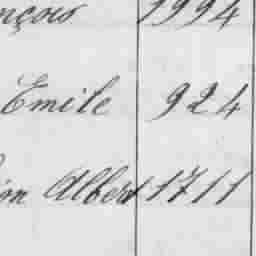 nçois 1994
Emile 924
on Albert 1711